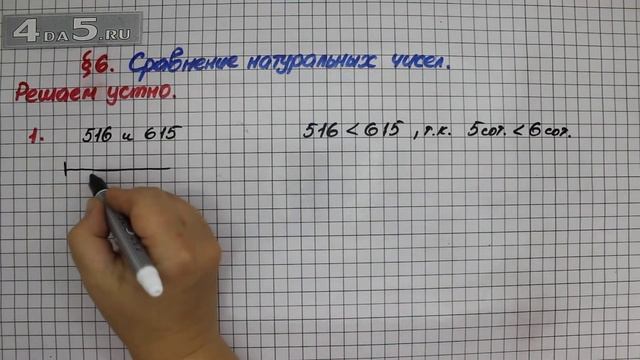 4DA5.RU
§6. Сравнение натуральных чисел.
Решаем устно.
1. 516 и 615 516 < 615 , т.к. 5 сот. < 6 сот.